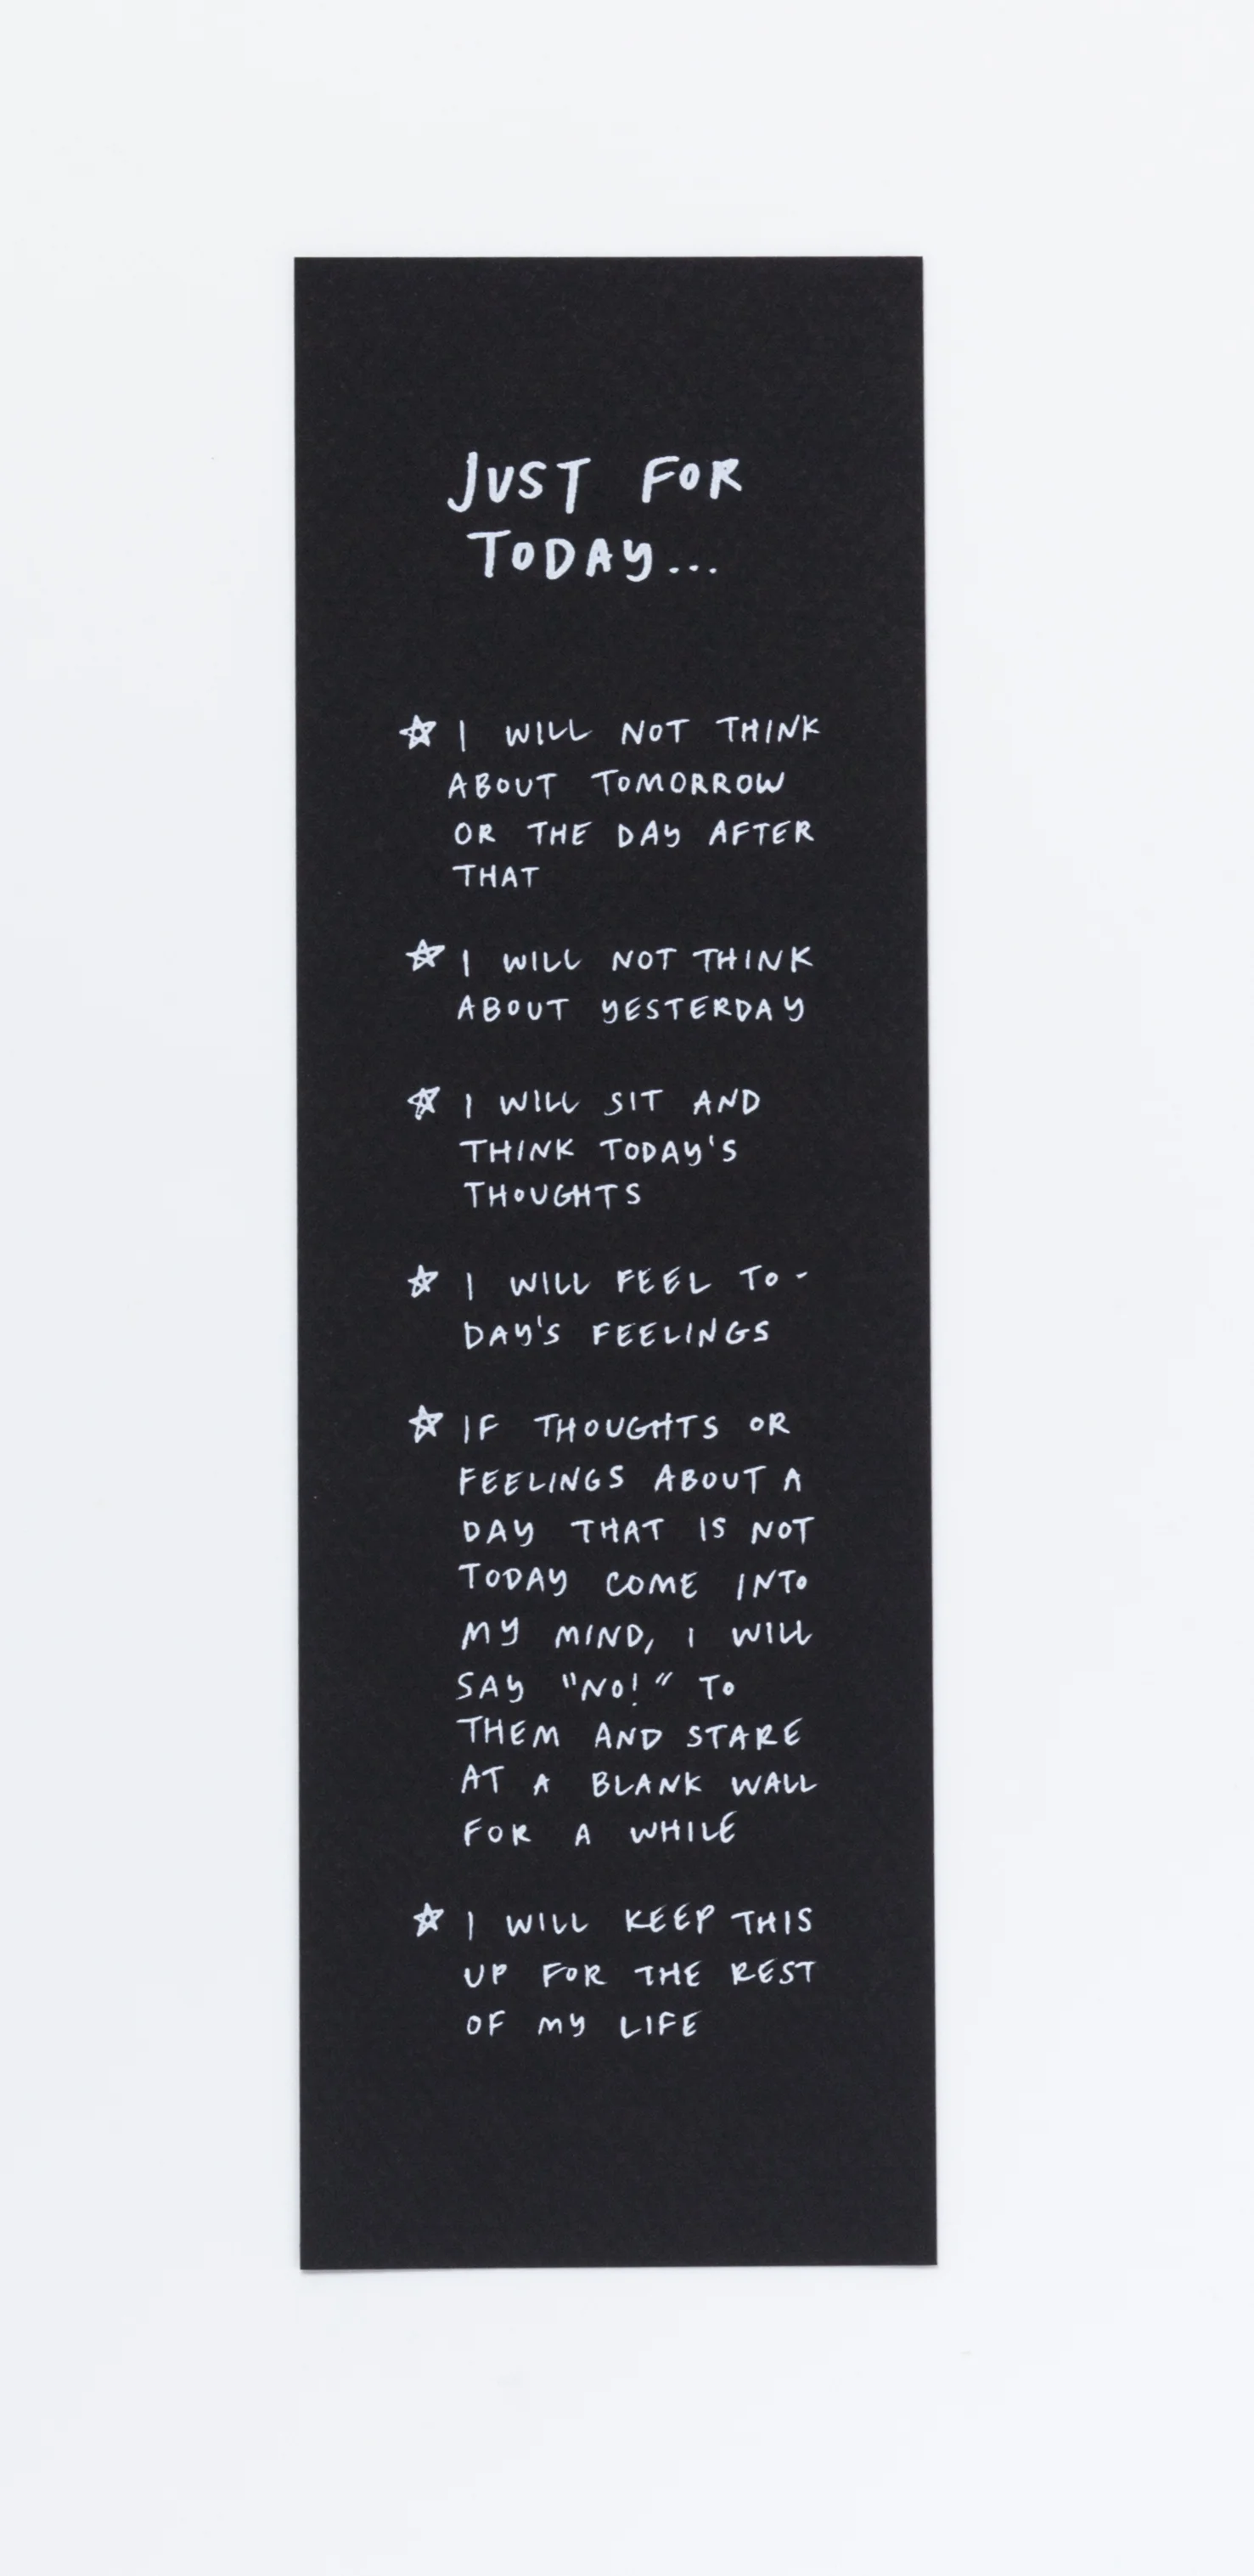 JUST FOR
TODAY...
☆ I WILL NOT THINK
ABOUT TOMORROW
OR THE DAY AFTER
THAT
☆ I WILL NOT THINK
ABOUT YESTERDAY
☆ I WILL SIT AND
THINK TODAY'S
THOUGHTS
☆ I WILL FEEL TO-
DAY'S FEELINGS
☆ IF THOUGHTS OR
FEELINGS ABOUT A
DAY THAT IS NOT
TODAY COME INTO
MY MIND, I WILL
SAY "NO!" TO
THEM AND STARE
AT A BLANK WALL
FOR A WHILE
☆ I WILL KEEP THIS
UP FOR THE REST
OF MY LIFE